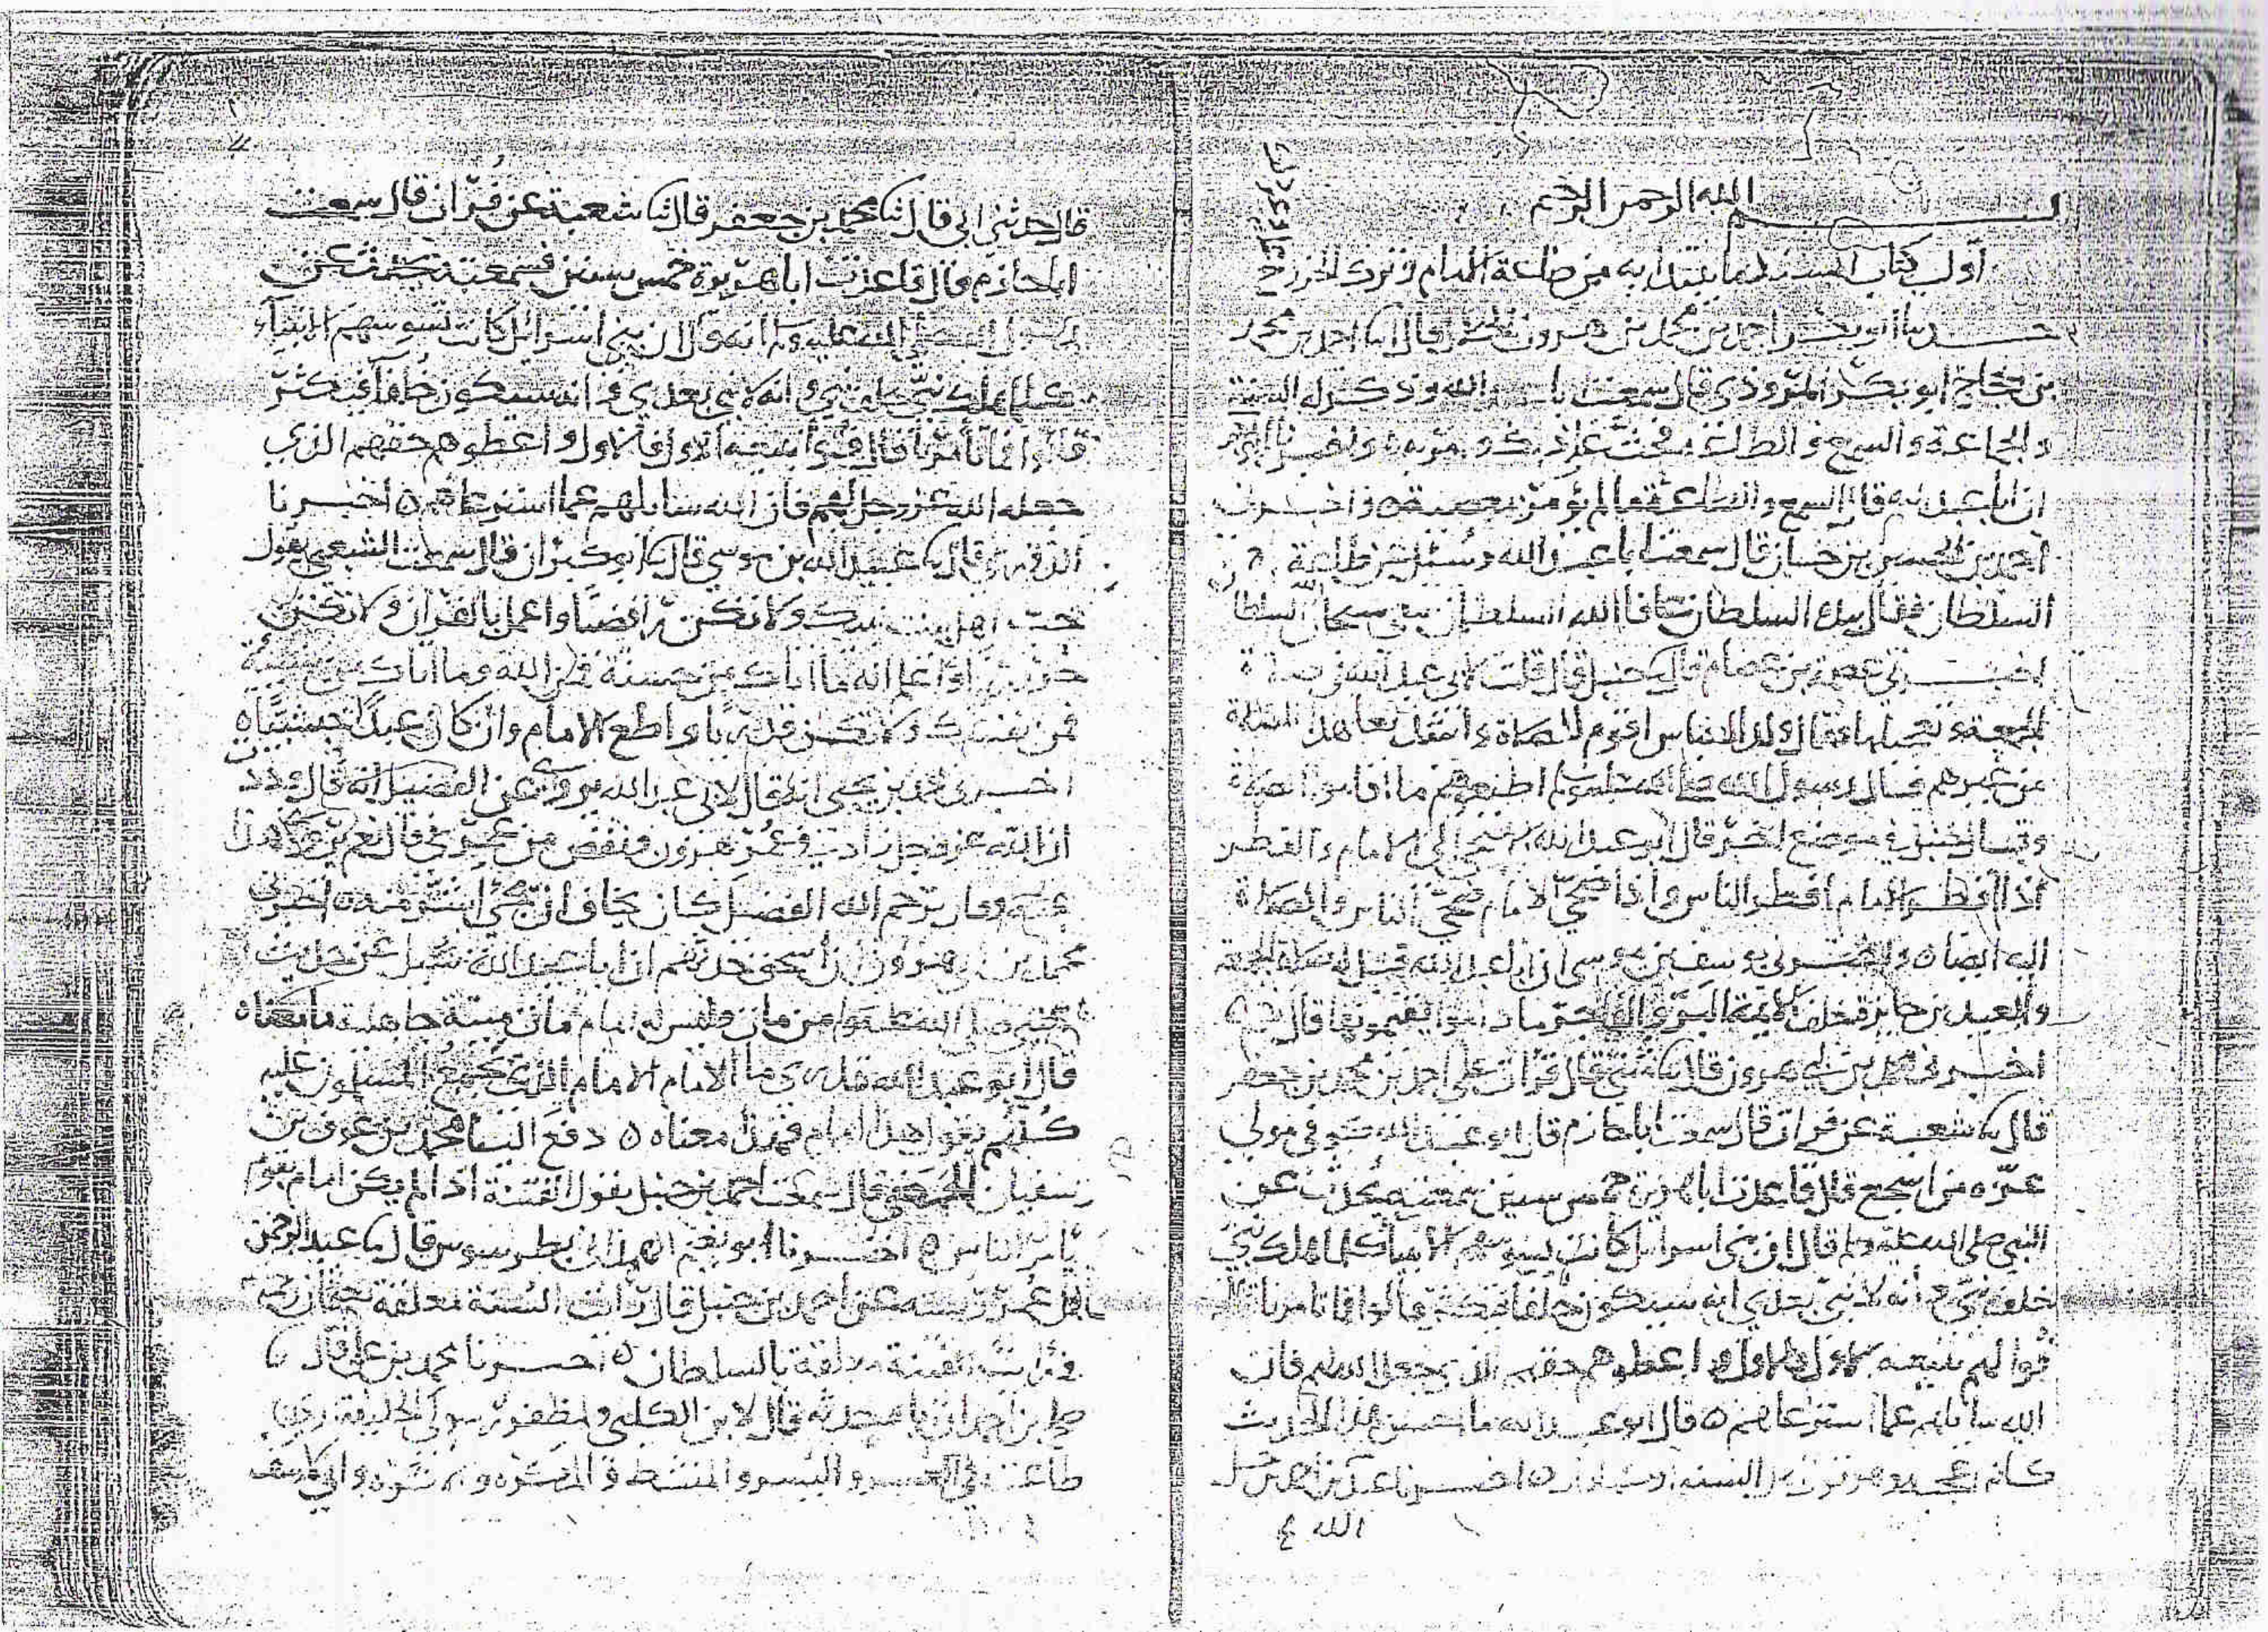 بسم الله الرحمن الرحيم
أول كتاب المسند ما يبتدأ به من طاعة الامام وترك الخروج
حدثنا أبو بكر احمد بن محمد بن هرون قال انا احمد بن محمد
بن حجاج ابو بكر المروذي قال سمعت ابا عبد الله وذكر له السنة
والجماعة والسمع والطاعة فحث على ذلك وامر به واخبرنا
ان ابا عبد الله قال السمع والطاعة ما لم يؤمر بمعصية ه واخبرني
احمد بن الحسين بن حسان قال سمعت ابا عبد الله وسئل عن طاعة
السلطان فقال بيده السلطان عافا الله السلطان تنبغي سبحان الله السلطان
اخبرني عصمة بن عصام قال نا حنبل قال قلت لابي عبد الله
الجمعة
من غيرهم فقال رسول الله صلى الله عليه وسلم اطيعوهم ما اقاموا الصلاة
وقال حنبل في موضع اخر قال ابو عبد الله الى الامام والفطر
اذا افطر الامام افطر الناس واذا ضحى الامام ضحى الناس والصلاة
اليه ايضا ه واخبرني يوسف بن موسى ان ابا عبد الله قيل له صلاة الجمعة
والعيدين جائزة خلف الائمة البر والفاجر ما داموا يقيمونها قال نعم
اخبرني محمد بن ابي هرون قال نا مثنى قال قرأت على احمد بن محمد بن جعفر
قال نا شعبة عن فرات قال سمعت ابا حازم قال ابو عبد الله كوفي مولى
عزه من اشجع قال قاعدت ابا هريرة خمس سنين سمعته يحدث عن
النبي صلى الله عليه وسلم قال ان بني اسرائل كانت تسوسهم الانبيا كلما هلك نبي
خلفه نبي وانه لا نبي بعدي انه سيكون خلفا فتكثر قالوا فما تامرنا قال
فوا لهم بيعه الاول فالاول واعطوهم حقهم الذي جعل الله لهم فان
الله سايلهم عما استرعاهم ه قال ابو عبد الله ما احسن هذا الحديث
كانه اعجبه اخبرنا عبد الله بن احمد بن حنبل
الله
قال حدثني ابي قال نا محمد بن جعفر قال نا شعبة عن فرات قال سمعت
ابا حازم قال قاعدت ابا هريرة خمس سنين فسمعته يحدث عن
رسول الله صلى الله عليه وسلم انه قال ان بني اسرائل كانت تسوسهم الانبياء
كلما هلك نبي خلفه نبي وانه لا نبي بعدي وانه سيكون خلفا فتكثر
قالوا فما تأمرنا قال فوا ببيعه الاول فالاول واعطوهم حقهم الذي
جعله الله عز وجل لهم فان الله سايلهم عما استرعاهم ه اخبرنا
الدوري قال نا عبيد الله بن موسى قال نا ابو كبران قال سمعت الشعبي يقول
حب اهل بيت نبيك ولا تكن رافضيا واعمل بالقرآن ولا تكن
حروريا واعلم انه ما اتاك من حسنة فمن الله وما اتاك من سيئة
فمن نفسك ولا تكن قدريا واطع الامام وان كان عبدا حبشيا ه
اخبرني محمد بن يحيى انه قال لابي عبد الله يروى عن الفضيل انه قال وددت
ان الله عز وجل زاد في عمر هرون ونقص من عمري قال نعم يروى هذا
عنه وقال يرحم الله الفضيل كان يخاف ان يجئ اشر منه ه اخبرني
محمد بن ابي هرون ان اسحق حدثهم ان ابا عبد الله سئل عن حديث
النبي صلى الله عليه وسلم من مات وليس له امام مات ميتة جاهلية ما معناه
قال ابو عبد الله تدري ما الامام الامام الذي يجمع المسلمون عليه
كلهم يقول هذا امام فهذا معناه ه دفع الينا محمد بن عوف بن
سفيان الحمصي قال سمعت احمد بن حنبل يقول الفتنة اذا لم يكن امام يقوم
بأمر الناس ه اخبرنا ابو نعيم الهمذاني بطرسوس قال نا عبد الرحمن
بن عمر رسته عن احمد بن حنبل قال رأيت السنة معلقة بعثمان رحمه
ورأيت الفتنة معلقة بالسلطان ه اخبرنا محمد بن علي قال نا
صالح بن احمد ان اباه حدثه قال لابن الكلبي ولمظفر رسولي الخليفة ارى
طاعته في العسر واليسر والمنشط والمكره والاثره واني لآسف